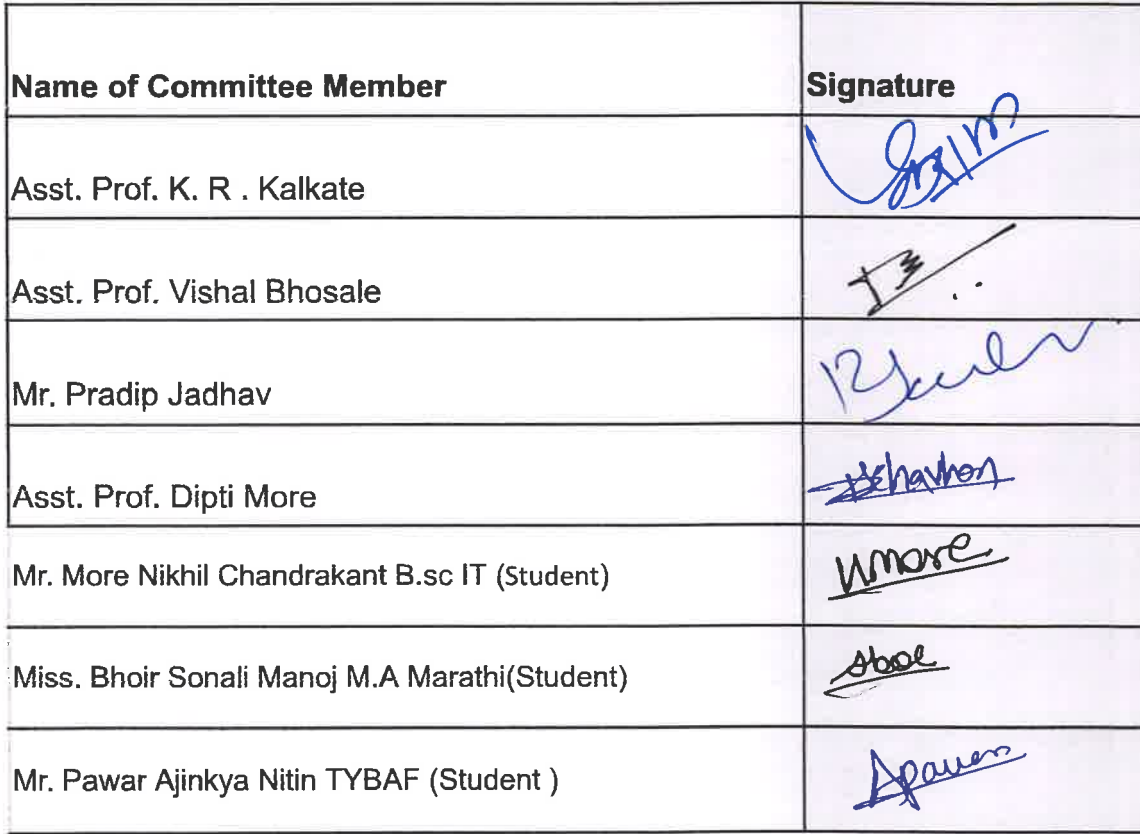 Name of Committee Member Signature
Asst. Prof. K. R . Kalkate
Asst. Prof. Vishal Bhosale
Mr. Pradip Jadhav
Asst. Prof. Dipti More
Mr. More Nikhil Chandrakant B.sc IT (Student) NMore
Miss. Bhoir Sonali Manoj M.A Marathi(Student)
Mr. Pawar Ajinkya Nitin TYBAF (Student ) Apawar